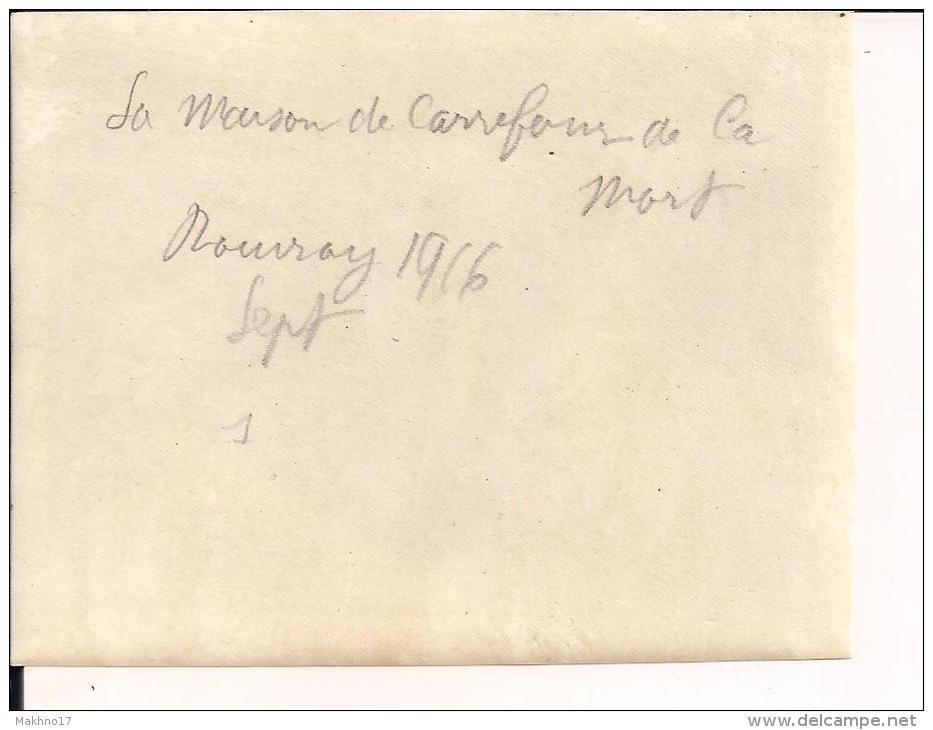 La Maison de Carrefour de La
Mort
Rouvroy 1916
Sept
1
Makhno17
www.delcampe.net